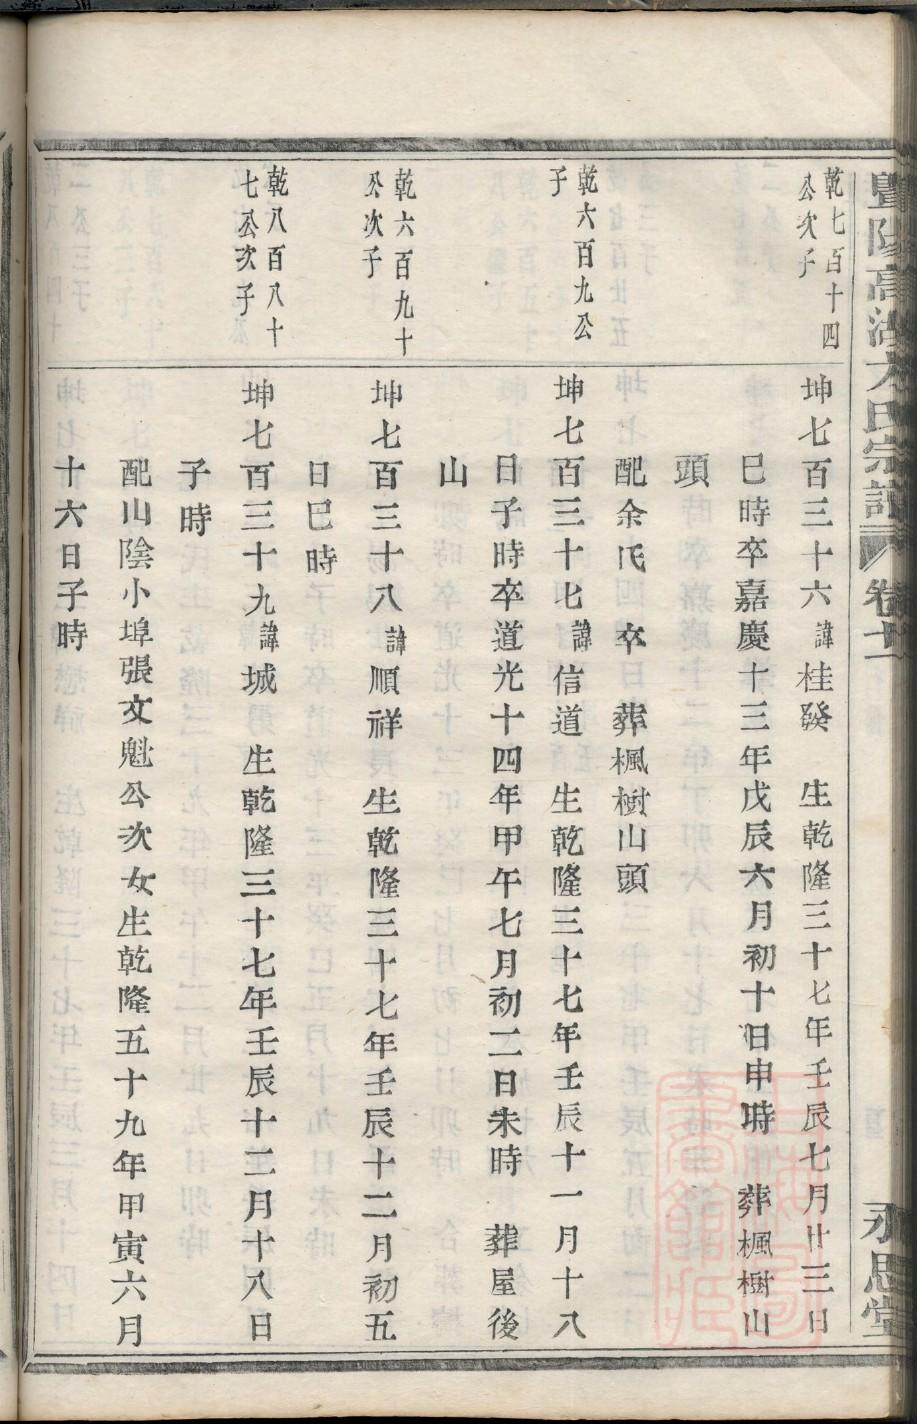 暨陽高湖方氏宗譜 卷十二
永思堂
乾七百十四
公次子
坤七百三十六諱桂發 生乾隆三十七年壬辰七月廿三日
巳時卒嘉慶十三年戊辰六月初十日申時 葬楓樹山
頭
配余氏 卒 葬楓樹山頭
乾六百九公
子
坤七百三十七諱信道 生乾隆三十七年壬辰十一月十八
日子時卒道光十四年甲午七月初二日未時 葬屋後
山
乾六百九十
公次子
坤七百三十八諱順祥 生乾隆三十七年壬辰十二月初五
日巳時
乾八百八十
七公次子
坤七百三十九諱城 生乾隆三十七年壬辰十二月十八日
子時
配山陰小埠張文魁公次女生乾隆五十九年甲寅六月
十六日子時